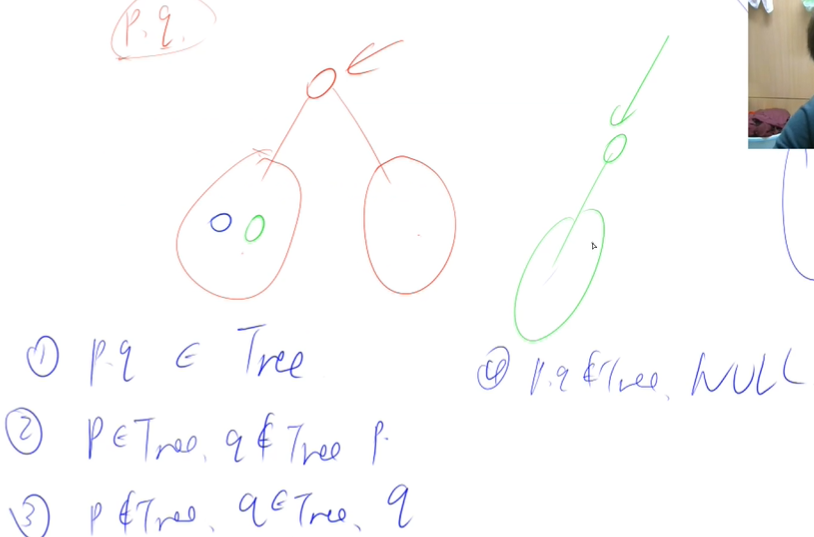 p.q.
① p.q ∈ Tree
② p∈Tree, q∉Tree p.
③ p∉Tree, q∈Tree, q
④ p.q∉Tree, NULL